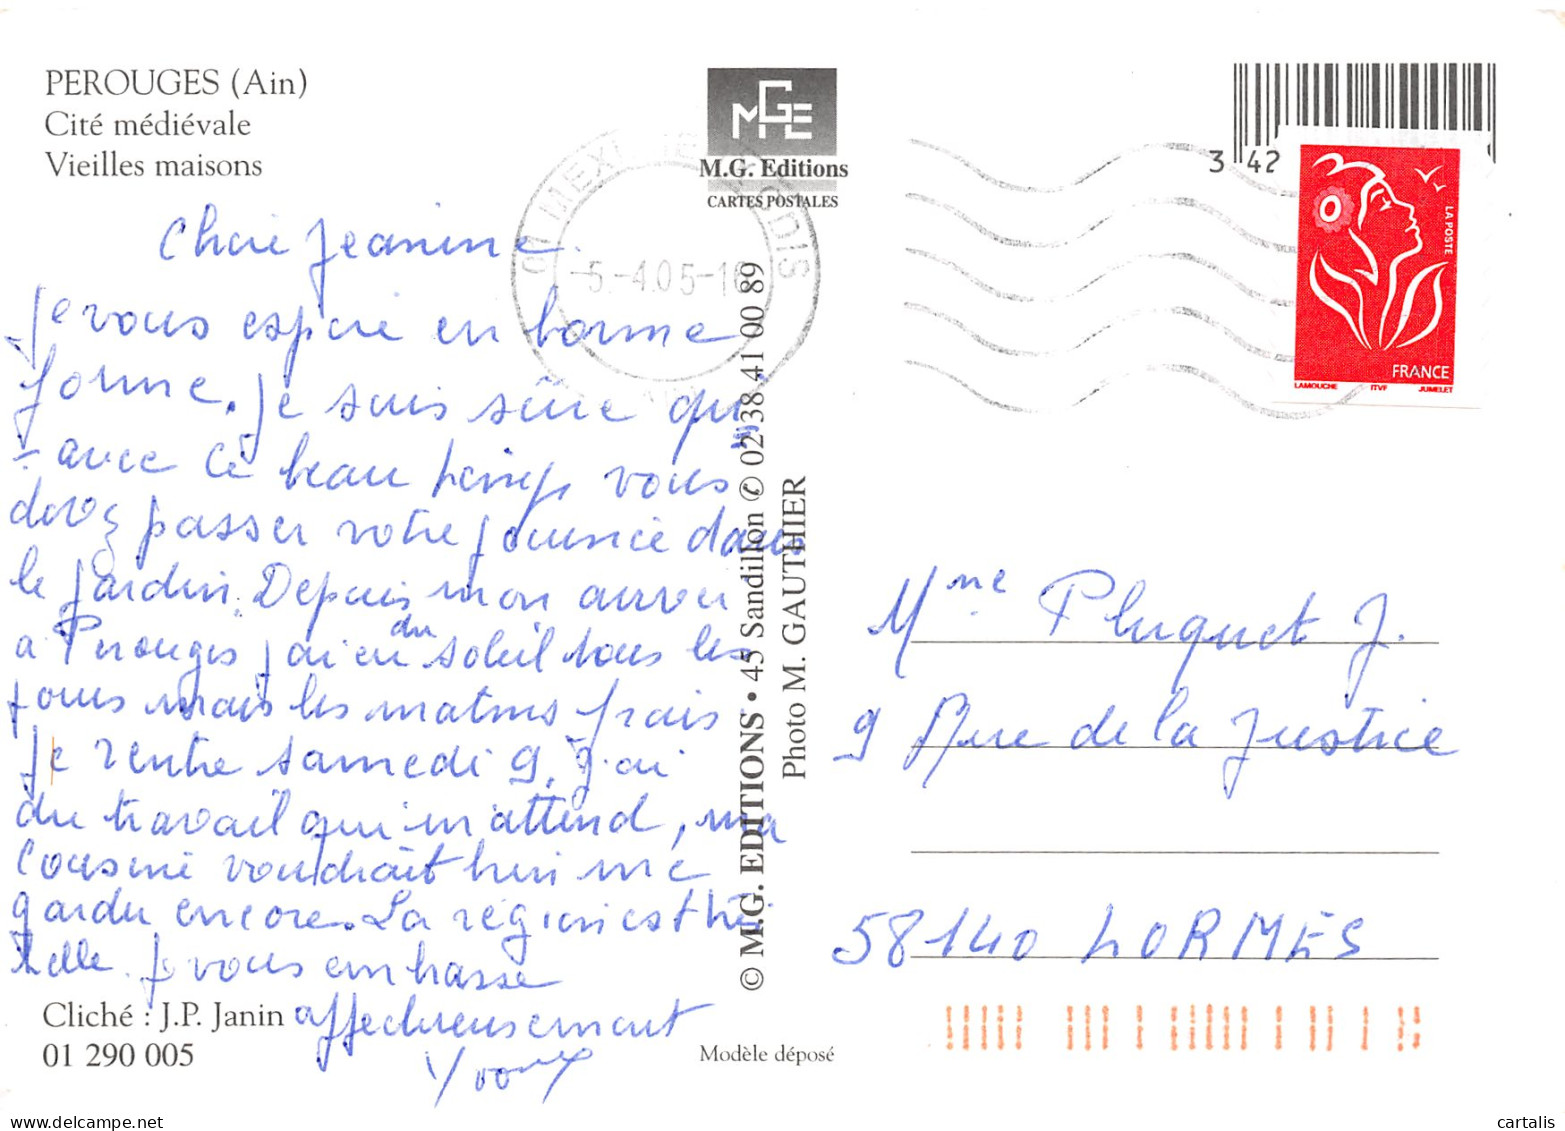 PEROUGES (Ain)
Cité médiévale
Vieilles maisons
MGE
M.G. Editions
CARTES POSTALES
01 MEXIMIEUX
-5.-4.05-16
3 42
LA POSTE
FRANCE
LAMOUCHE ITVF JUMELET
Chère Jeanine.
Je vous espère en bonne
forme. Je suis sûre qu'
- avec ce beau temps vous
devez passer votre journée dans
le jardin. Depuis mon arrivée
a Perouges j'ai eu du soleil tous les
jours mais les matins frais
Je rentre samedi 9, j'ai
du travail qui m'attend, ma
cousine voudrait bien me
garder encore. La région est très
belle. Je vous embrasse
affectueusement
© M.G. EDITIONS • 45 Sandillon ✆ 02 38 41 00 89
Photo M. GAUTHIER
Mme Pluquet J.
9 Rue de la Justice
58140 LORMES
Cliché : J.P. Janin
01 290 005
Modèle déposé
cartalis
www.delcampe.net